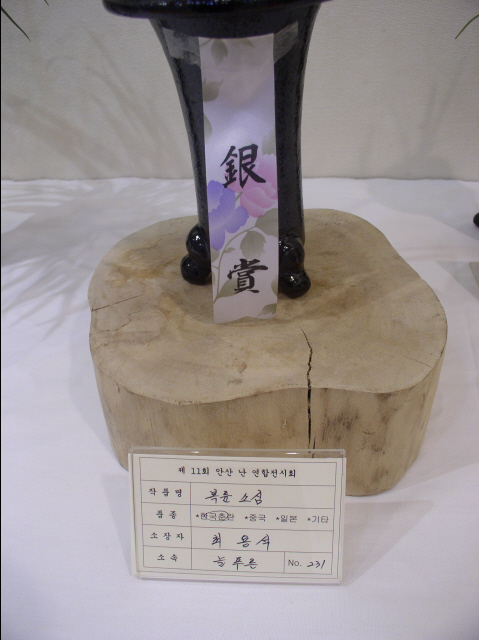 銀
賞
제 11회 안산 난 연합전시회
작품명 복륜 소심
품종 *한국춘란 *중국 *일본 *기타
소장자 최용석
소속 늘푸른 No. 231